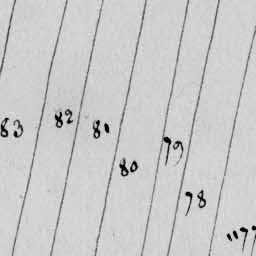 83
82
81
80
79
78
"77